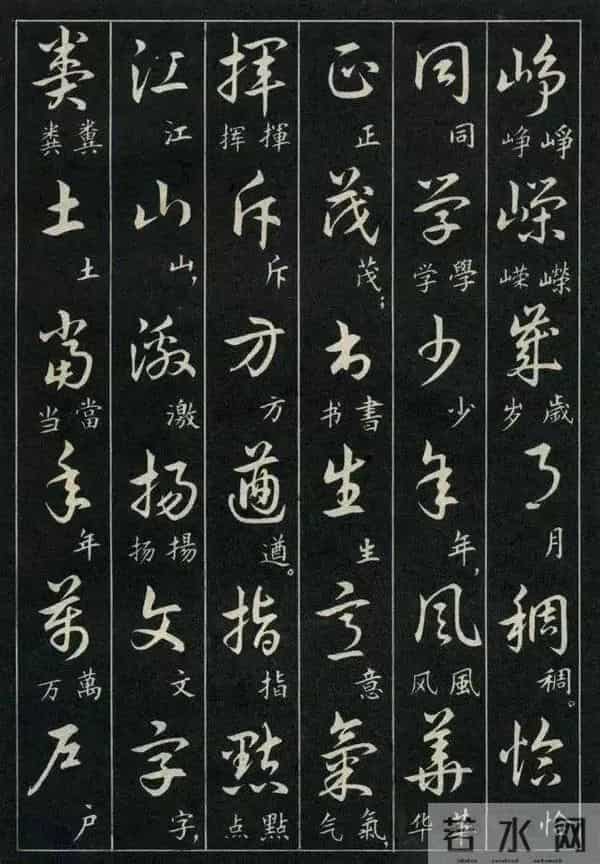 崢嶸歲月稠恰
崢嶸歲月稠。恰
峥嵘岁
同学少年風華
同學少年，風華
学风华
正茂书生意氣
正茂；書生意氣，
书气
揮斥方遒指點
揮斥方遒。指點
挥点
江山激揚文字
江山，激揚文字，
扬
糞土當年萬户
糞土當年萬户
粪当万
若水网